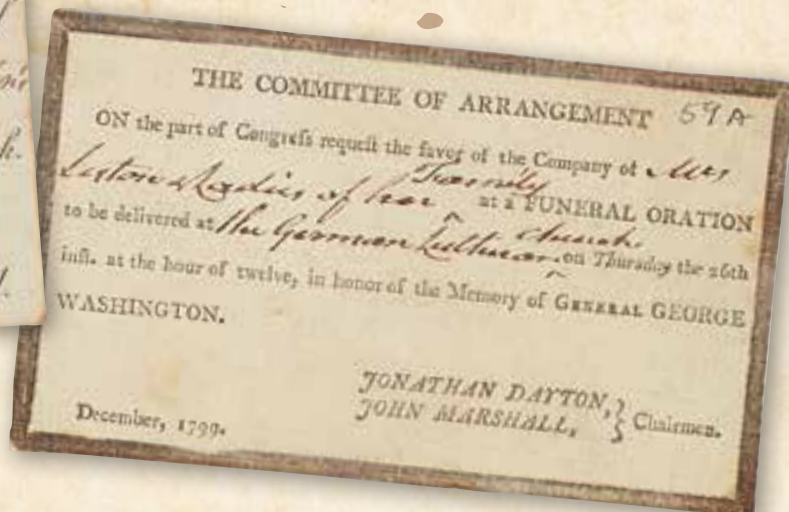 THE COMMITTEE OF ARRANGEMENT 59A
ON the part of Congreſs requeſt the favor of the Company of Mrs
Liston & Ladies of her ^ Family at a FUNERAL ORATION
to be delivered at the German Lutheran ^ church on Thurſday the 26th
inſt. at the hour of twelve, in honor of the Memory of GENERAL GEORGE
WASHINGTON.
JONATHAN DAYTON,
JOHN MARSHALL, } Chairmen.
December, 1799.